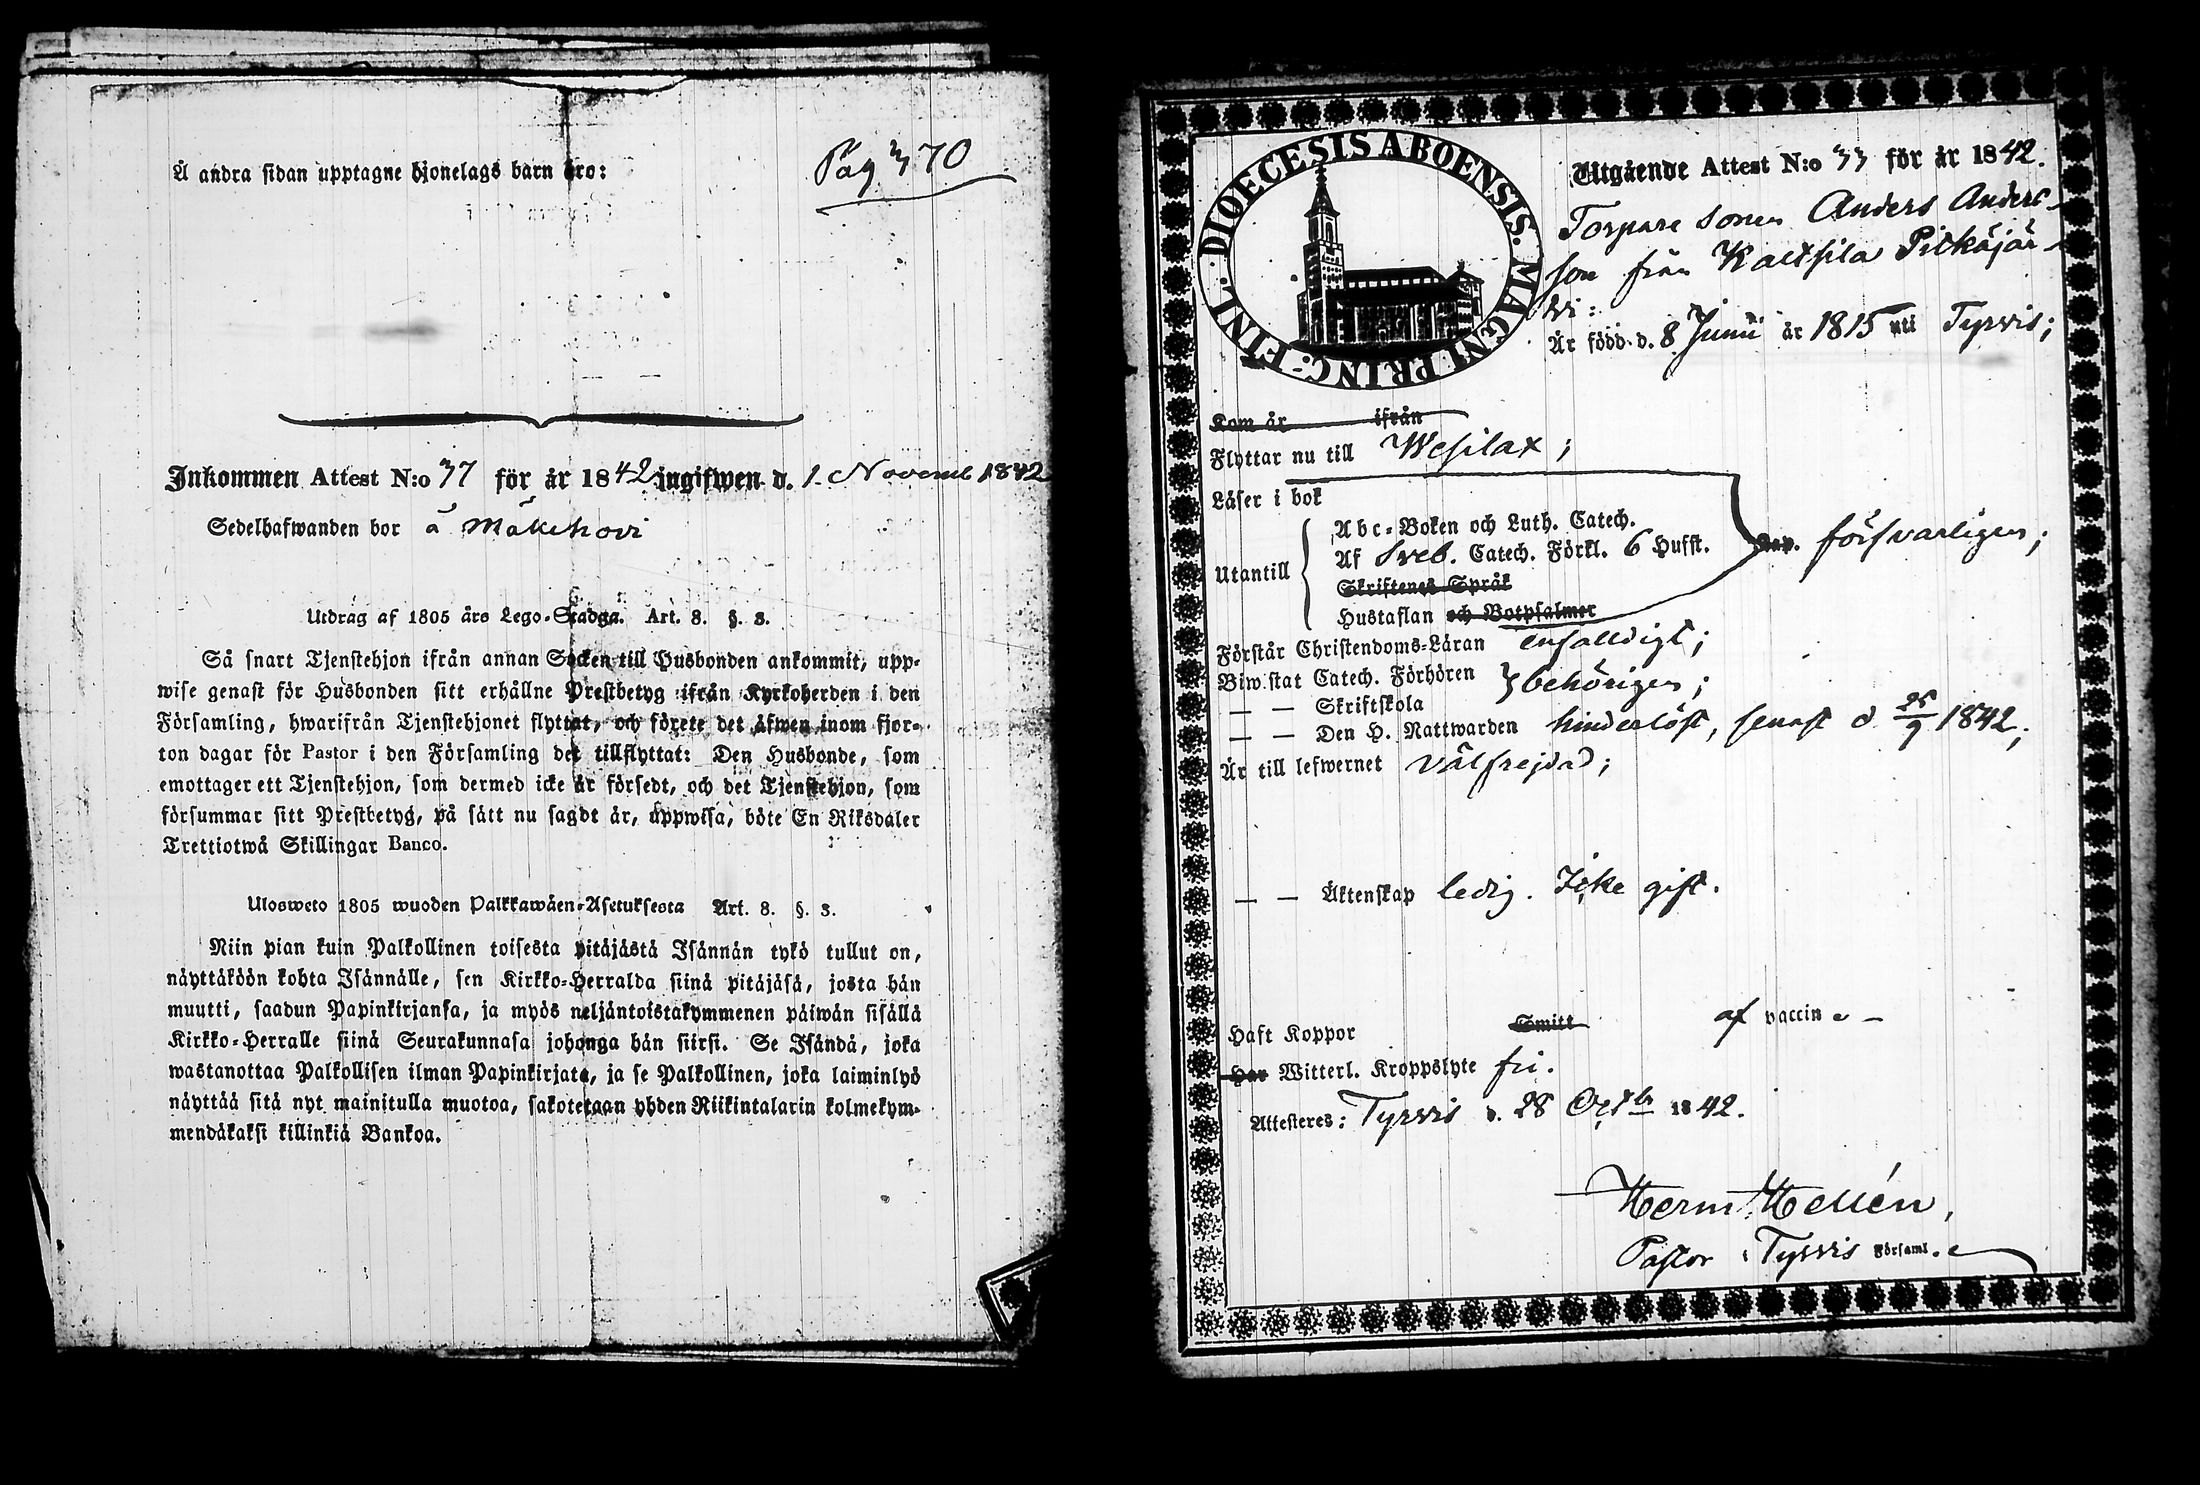 Å andra sidan upptagne hjonelags barn äro:
Pag 370
Inkommen Attest N:o 37 för år 1842 ingifwen d. 1 Novemb 1842
Sedelhafwanden bor å Mäkehovi
Utdrag af 1805 års Lego-Stadga. Art. 8. §. 3.
Så snart Tjenstehjon ifrån annan Socken till Husbonden ankommit, upp-
wise genast för Husbonden sitt erhållne Prestbetyg ifrån Kyrkoherden i den
Församling, hwarifrån Tjenstehjonet flyttat, och förete det äfwen inom fjor-
ton dagar för Pastor i den Församling det tillflyttat: Den Husbonde, som
emottager ett Tjenstehjon, som dermed icke är försedt, och det Tjenstehjon, som
försummar sitt Prestbetyg, på sätt nu sagdt är, uppwisa, böte En Riksdaler
Trettiotwå Skillingar Banco.
Ulosweto 1805 wuoden Palkkawäen-Asetuksesta Art. 8. §. 3.
Niin pian kuin Palkollinen toisesta pitäjästä Isännän tykö tullut on,
näyttäköön kohta Isännälle, sen Kirkko-Herralda siinä pitäjäsä, josta hän
muutti, saadun Papinkirjansa, ja myös neljäntoistakymmenen päiwän sisällä
Kirkko-Herralle siinä Seurakunnasa johonga hän siirsi. Se Isändä, joka
wastanottaa Palkollisen ilman Papinkirjata, ja se Palkollinen, joka laiminlyö
näyttää sitä nyt mainitulla muotoa, sakotetaan yhden Riikintalarin kolmekym-
mendäkaksi killinkiä Bankoa.
DIOECESIS ABOENSIS. MAGNI PRINC: FINL.
Utgående Attest N:o 33 för år 1842.
Torpare sonen Anders Anders
son från Kaltsila Pitkäjär
vi:
Är född d. 8 Junii år 1815 uti Tyrvis;
Kom år ifrån
Flyttar nu till Wesilax;
Läser i bok
Utantill
Abc-Boken och Luth. Catech.
Af Sveb. Catech. Förkl. 6 Hufst.
försvarligen;
Skriftenes Språk
Hustaflan och Botpsalmer
Förstår Christendoms-Läran enfalldigt;
Biwistat Catech. Förhören } behörigen;
— — Skriftskola
— — Den H. Nattwarden hinderlöst, senast d 25/9 1842;
Är till lefwernet välfrejdad;
— — Äktenskap ledig. Icke gift.
Haft Koppor Smitt af vaccine —
Har Witterl. Kroppslyte fri.
Attesteres: Tyrvis d. 28 Octbr 1842.
Herm. Hellén,
Pastor i Tyrvis Församl.